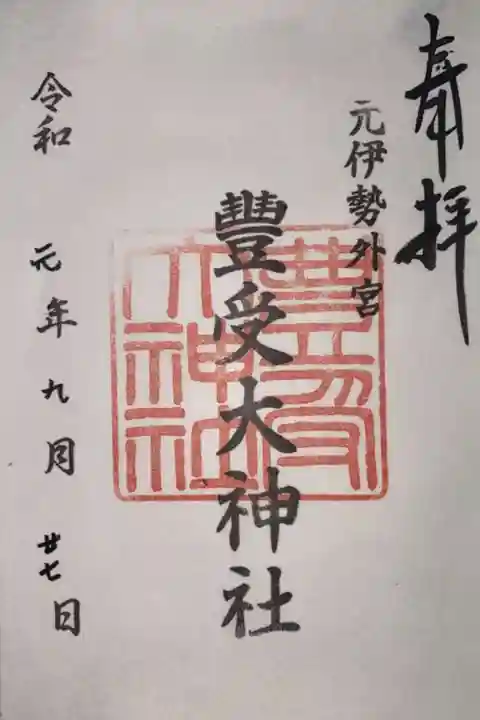 奉拝
元伊勢外宮
豊受大神社
豐受大神社
令和元年九月廿七日